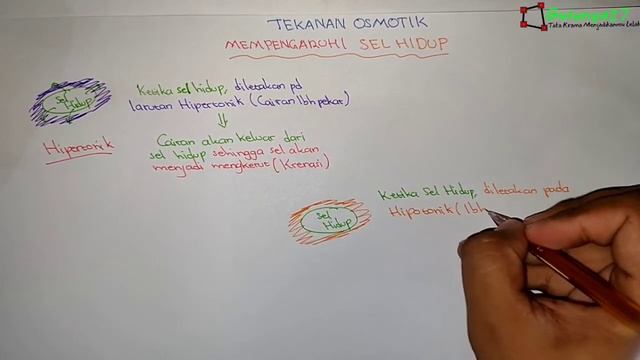 TEKANAN OSMOTIK
MEMPENGARUHI SEL HIDUP
Sel Hidup
Ketika sel hidup, diletakan pd
larutan Hipertonik (Cairan lbh pekar)
Hipertonik
Cairan akan keluar dari
sel hidup sehingga sel akan
menjadi mengkerut (Krenasi)
Ketika Sel Hidup, diletakan pada
Hipotonik (lbh
sel
Hidup
Tata Krama Menjadikanmu Lebih